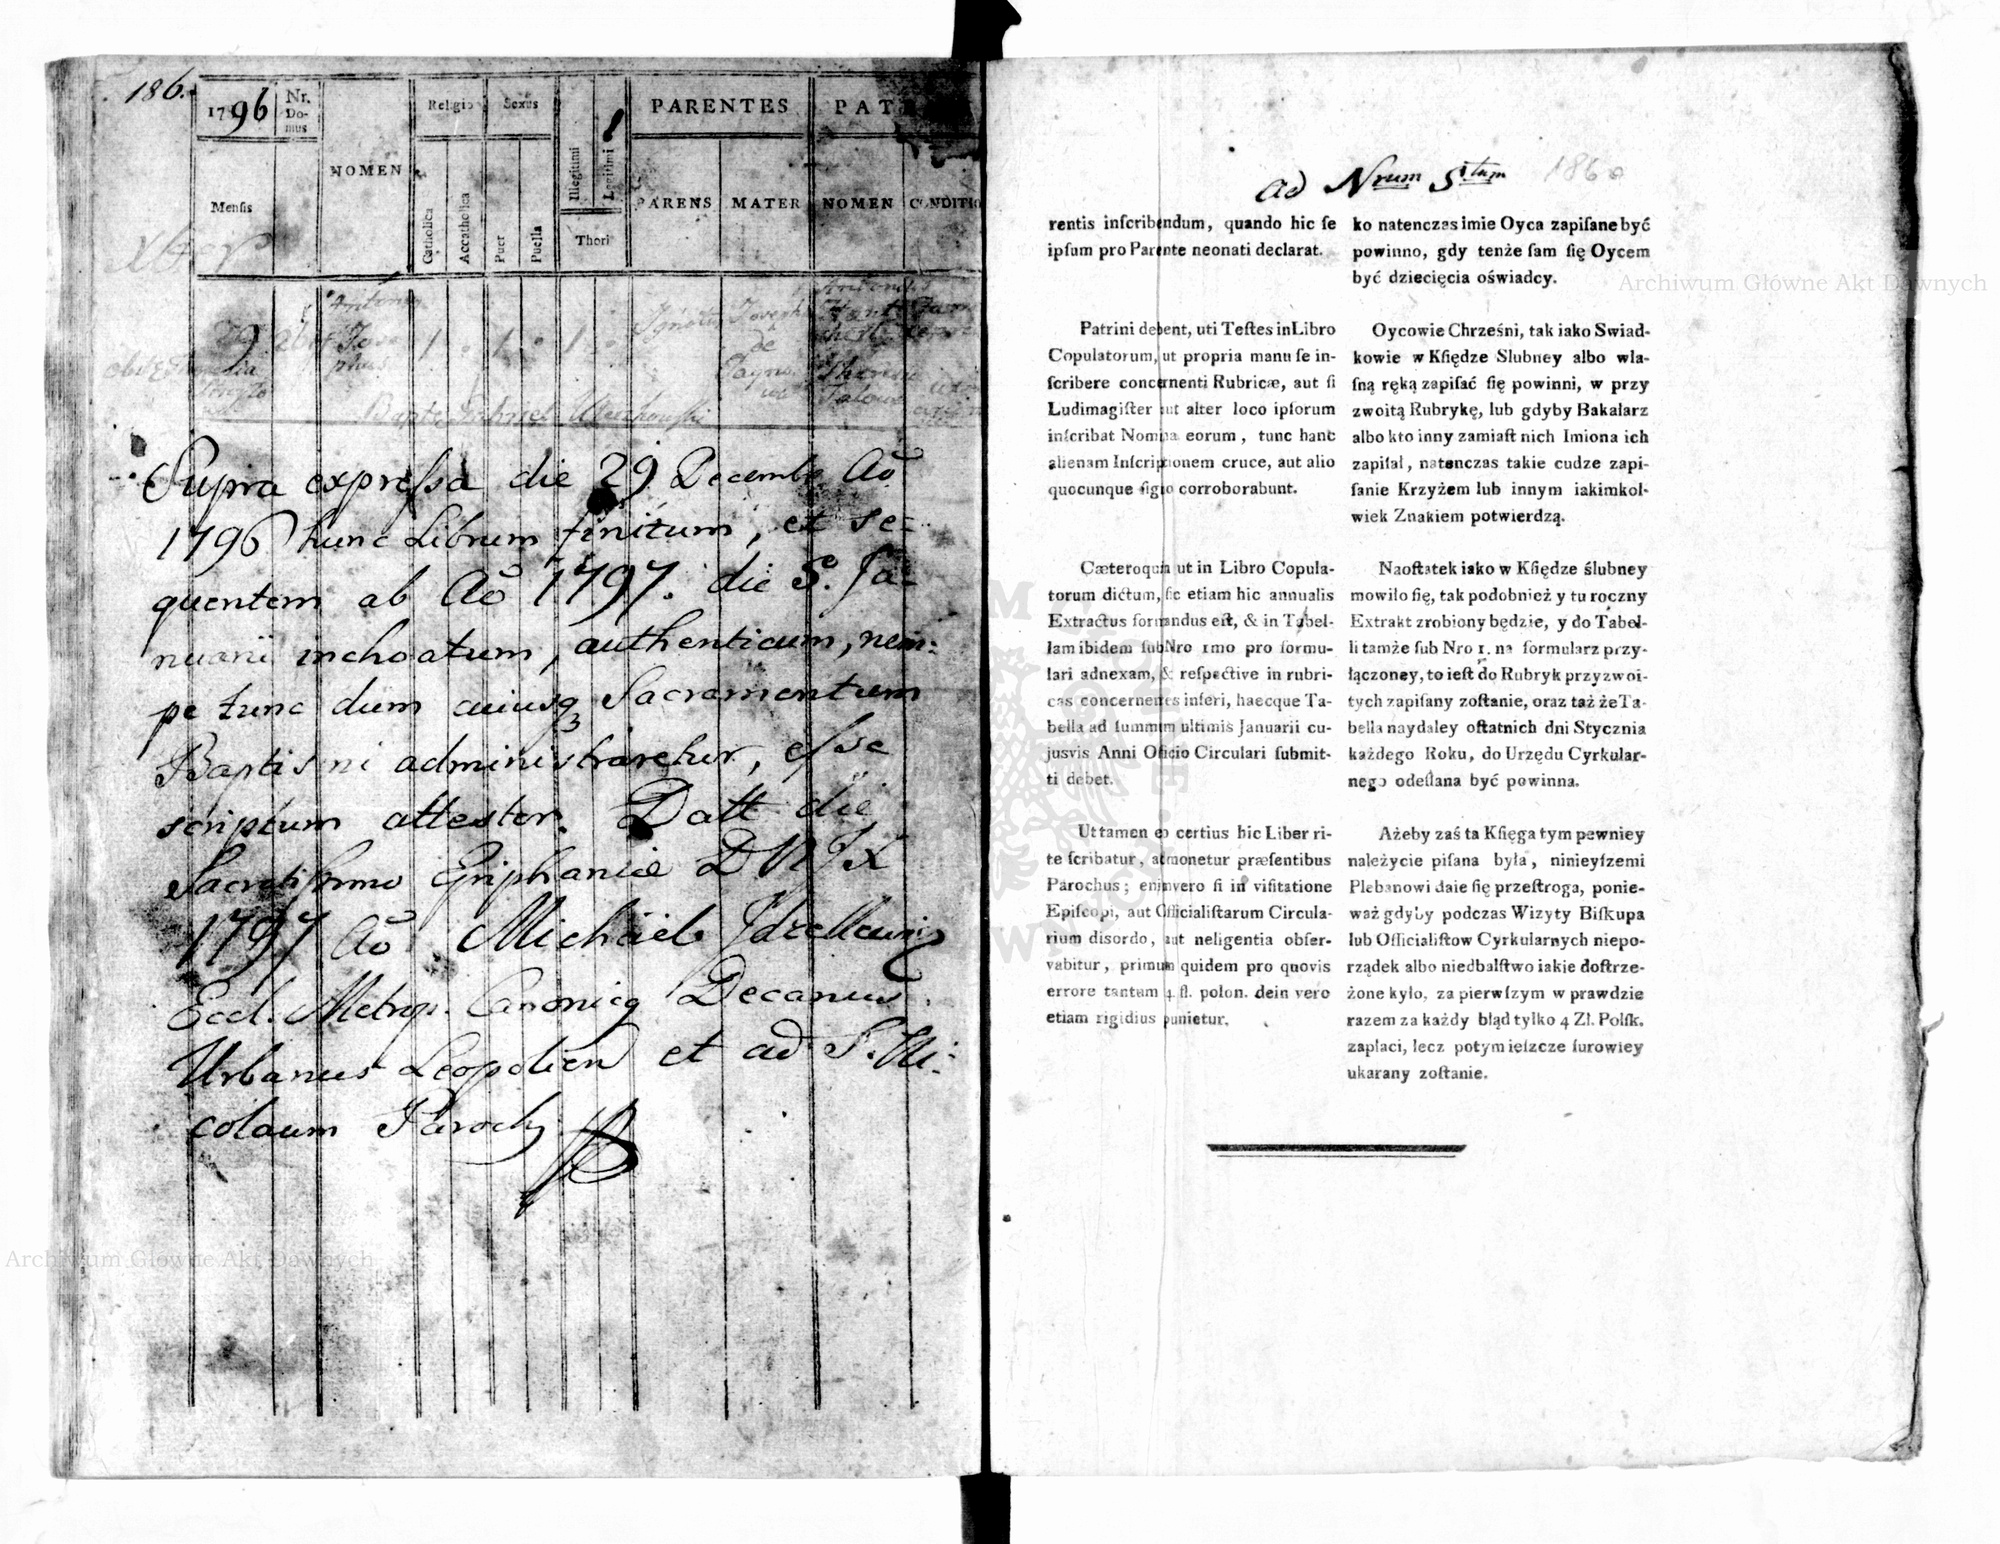 186.
1796
Nr. Do-
mus
NOMEN
Religio
Sexus
Illegitimi
Legitimi
Thori
PARENTES
PAT
Mensis
Catholica
Accatholica
Puer
Puella
PARENS
MATER
NOMEN
CONDITIO
Xbr
29
Antonius
Jose
phus
1
1
1
Ignatius
Joseph
de
Supra expressa die 29 Decembr. Aõ
1796 hunc Librum finitum, et se=
quentem ab Aõ 1797. die 8. Ja=
nuarii inchoatum, authenticum, nem:
pe tunc dum cuiusq3 Sacramentum
Baptismi administraretur, esse
scriptum attestor. Datt die
Sacratissimo Epiphaniæ D N J X
1797 Aõ Michaël
Eccl. Metrop. Canonicq Decanus
Urbanus Leopolien et ad S. Ni:
colaum Paroch
ad Nrum 5tum 186a
rentis inſcribendum, quando hic ſe
ipſum pro Parente neonati declarat.
Patrini debent, uti Teſtes in Libro
Copulatorum, ut propria manu ſe in-
ſcribere concernenti Rubricæ, aut ſi
Ludimagiſter aut alter loco ipſorum
inſcribat Nomina eorum, tunc hanc
alienam Inſcriptionem cruce, aut alio
quocunque ſigno corroborabunt.
Cæteroquin ut in Libro Copula-
torum dictum, ſic etiam hic annualis
Extractus formandus eſt, & in Tabel-
lam ibidem ſub Nro 1mo pro formu-
lari adnexam, & reſpective in rubri-
cas concernentes inſeri, haecque Ta-
bella ad ſummum ultimis Januarii cu-
jusvis Anni Oficio Circulari ſubmit-
ti debet.
Ut tamen eo certius hic Liber ri-
te ſcribatur, atmonetur præſentibus
Parochus; enimvero ſi in viſitatione
Epiſcopi, aut Officialiſtarum Circula-
rium disordo, aut neligentia obſer-
vabitur, primum quidem pro quovis
errore tantum 4 fl. polon. dein vero
etiam rigidius punietur.
ko natenczas imie Oyca zapiſane być
powinno, gdy tenże ſam ſię Oycem
być dziecięcia oświadcy.
Oycowie Chrześni, tak iako Swiad-
kowie w Kſiędze Slubney albo wla-
ſną ręką zapiſać ſię powinni, w przy
zwoitą Rubrykę, lub gdyby Bakalarz
albo kto inny zamiaſt nich Imiona ich
zapiſał, natenczas takie cudze zapi-
ſanie Krzyżem lub innym iakimkol-
wiek Znakiem potwierdzą.
Naoſtatek iako w Kſiędze ślubney
mowiło ſię, tak podobnież y tu roczny
Extrakt zrobiony będzie, y do Tabel-
li tamże ſub Nro 1. na formularz przy-
łączoney, to ieſt do Rubryk przyzwoi-
tych zapiſany zoſtanie, oraz taż że Ta-
bella naydaley oſtatnich dni Stycznia
każdego Roku, do Urzędu Cyrkular-
nego odeſlana być powinna.
Ażeby zaś ta Kſięga tym pewniey
należycie piſana była, ninieyſzemi
Plebanowi daie ſię przeſtroga, ponie-
waż gdyby podczas Wizyty Biſkupa
lub Officialiſtow Cyrkularnych niepo-
rządek albo niedbalſtwo iakie doſtrze-
żone kyło, za pierwſzym w prawdzie
razem za każdy błąd tylko 4 Zł. Polſk.
zapłaci, lecz potym ieſzcze ſurowiey
ukarany zoſtanie.
Archiwum Główne Akt Dawnych
Archiwum Główne Akt Dawnych